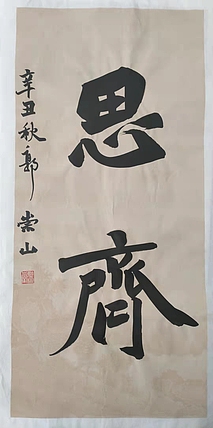 思齊
辛丑秋郭崇山